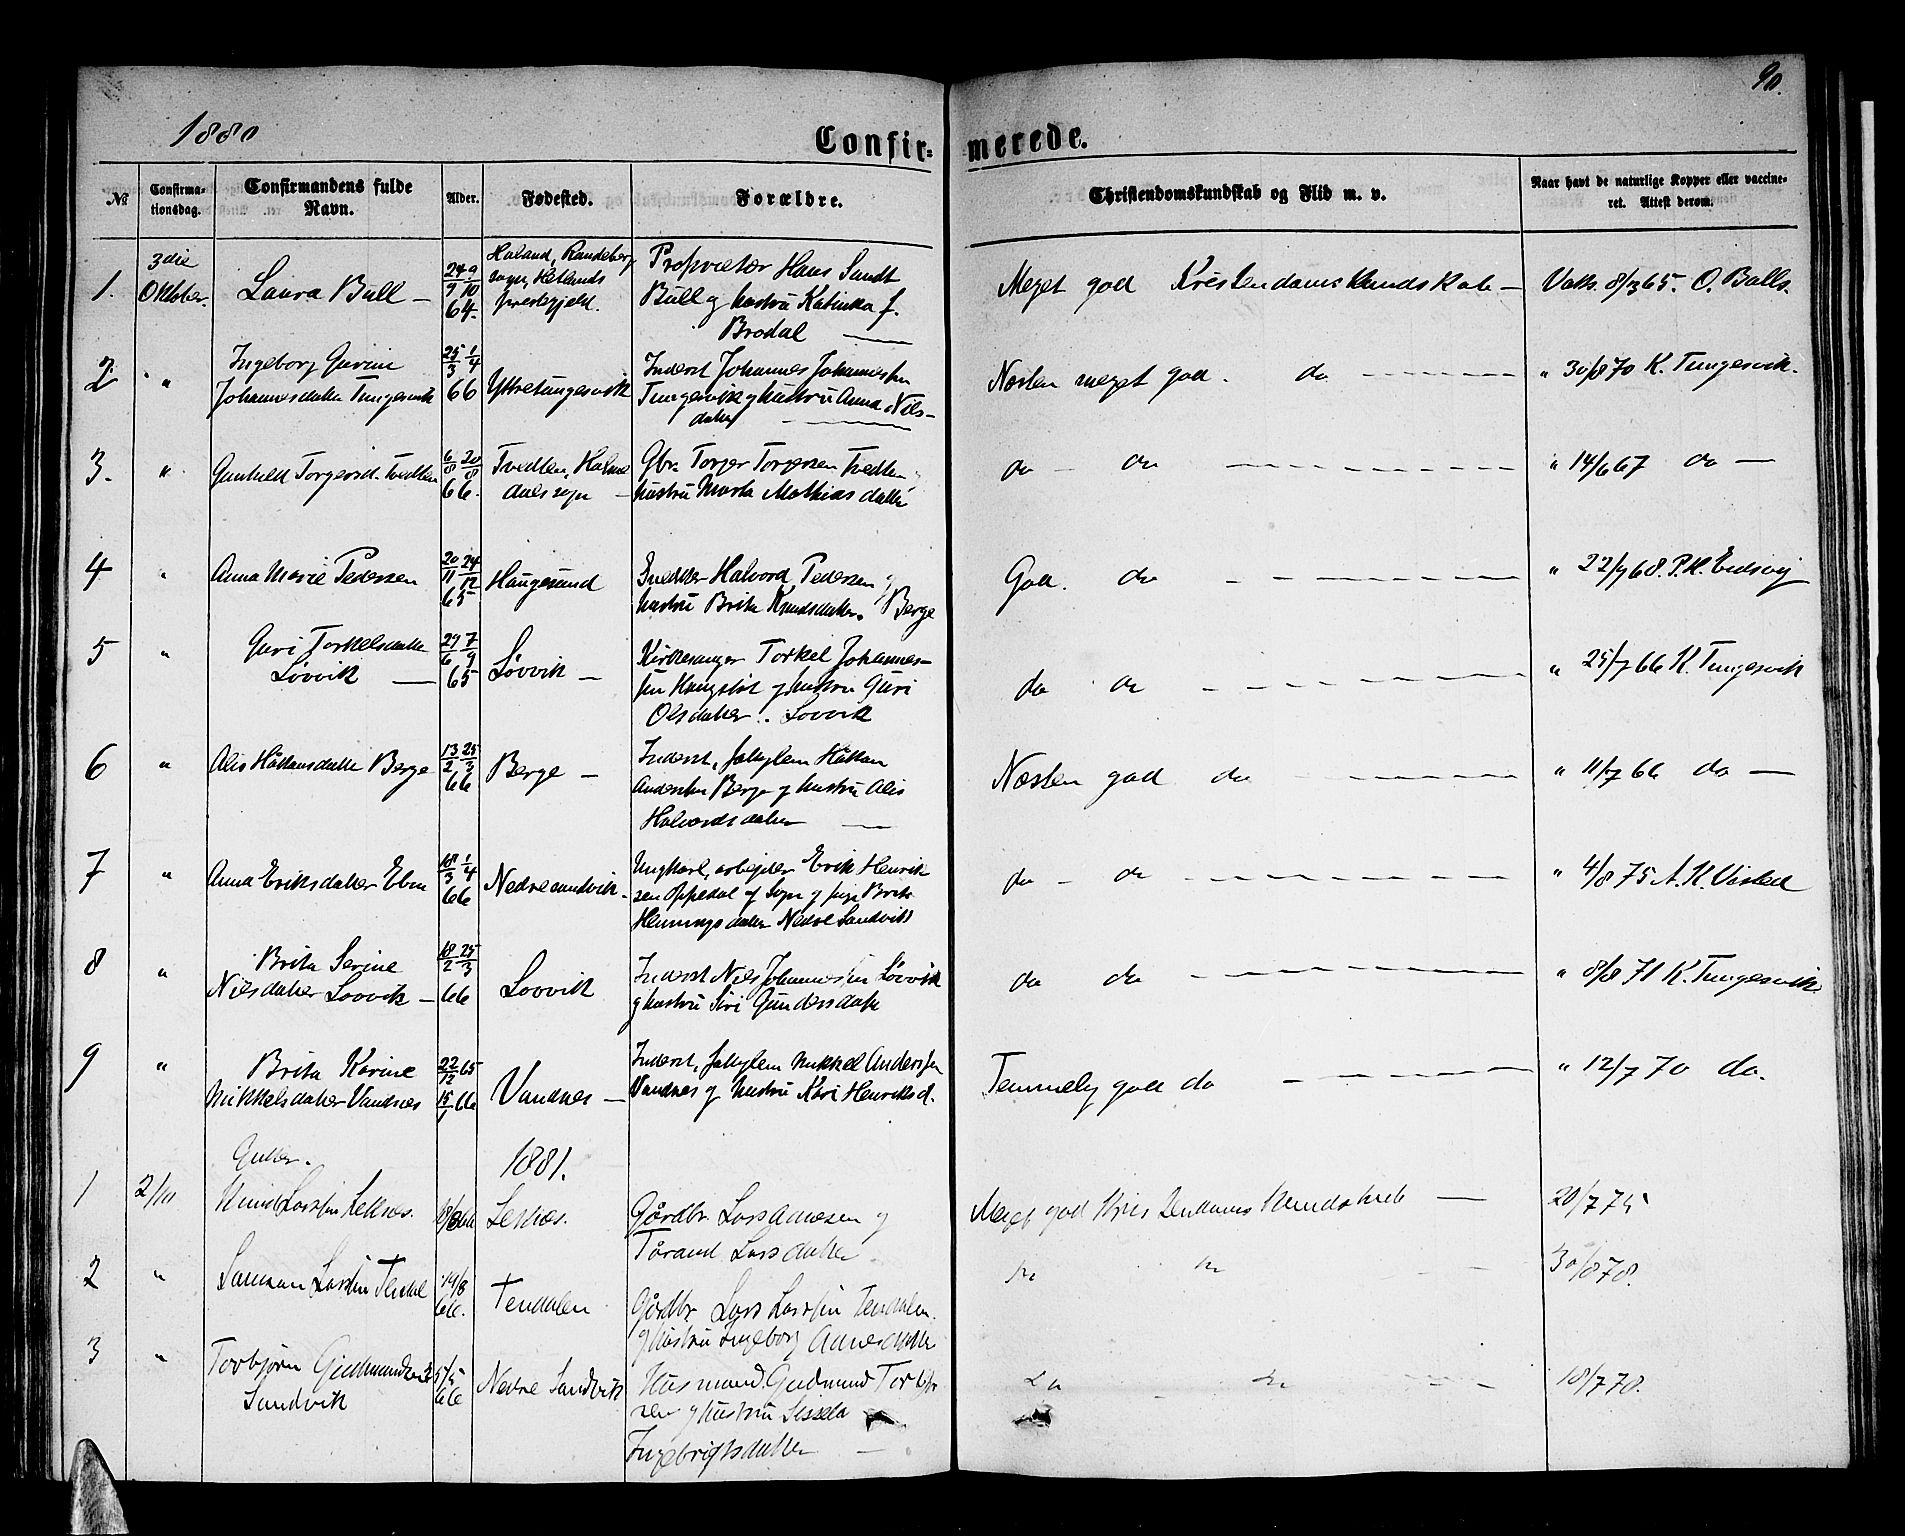 90.
1880
Confir- merede.
№ Confirma-tionsdag. Confirmandens fulde Navn. Alder. Fødested. Forældre. Christendomskundskab og Flid m. v. Naar havt de naturlige Kopper eller vaccine-ret. Attest derom.
1. 3die Oktober. Laura Bull — 24/9 9/10 64. Haland, Randeberg sogn, Hetlands prestegjeld. Proprietær Hans Sundt Bull og hustru Katinka f. Brodal — Meget god Kristendomskundskab — Vaks. 8/3 65. O. Balle.
2 " Ingeborg Gurine Johannesdatter Tungesvik 25/3 1/4 66 Ytretungesvik Inderst Johannes Johannessen Tungesvik og hustru Anna Nils-datter — Næsten meget god. do — " 30/8 70 K. Tungesvik.
3. " Gunhild Torgersd. Tvedten 6/8 20/8 66. Tvedten, Holme dals sogn — Gbr. Torger Torgersen Tvedten hustru Marta Mathiasdatter do — do — " 14/6 67 do —
4 " Anna Marie Pedersen 20/11 24/12 65 Haugesund Snedker Halvord Pedersen og hustru Brita Knudsdatter. Berge God. do — " 22/9 68. P. K. Eidsvig
5 " Guri Torkelsdatter Løvvik — 29/6 7/9 65 Løvvik — Kirkesanger Torkel Johannes-sen Kongslit og hustru Guri Olsdatter. Løvvik do do — " 25/7 66 K. Tungesvik
6 " Alis Håkansdatter Berge 13/2 25/3 66 Berge — Inderst, fattiglem Håkan Anderssen Berge og hustru Alis Halvordsdatter — Næsten god do — " 11/7 66 do —
7 " Anna Eriksdatter Ebne 18/3 1/4 66 Nedresandvik. Ungkarl, arbejder Erik Henrik sen Oppedal af Sogn og pige Brita Henningsdatter Nedre Sandvik do — do — " 4/8 75 A. K. Vistad
8 " Brita Serine Nilsdatter Løvvik — 18/2 25/3 66 Løvvik Inderst Nils Johannessen Løvvik og hustru Siri Gundersdatter do do — " 8/8 71 K. Tungesvik.
9 " Brita Karine Mikkelsdatter Vandnes 22/12 65 15/1 66 Vandnes — Inderst, fattiglem Mikkel Anderssen Vandnes og hustru Kari Henriksd. Temmelig god do — " 12/7 70 do.
Gutter. 1881.
1 2/10 Larssen Leknæs. 66 Leknæs. Gårdbr. Lars Amesen og Tårand Larsdatter Meget god Kristendomskundskab — 20/7 75
2 " Samson Larssen Tendal 19/8 66. Tendalen Gårdbr. Lars Larssen Tendalen. og hustru Ingeborg Amesdatter do do 30/8 78.
3 " Torbjørn Gudmundsen Sandvik 5/5 66 Nedre Sandvik. Husmand Gudmund Torbjør sen og hustru Sissela Ingebrigtsdatter — do do 18/7 78.